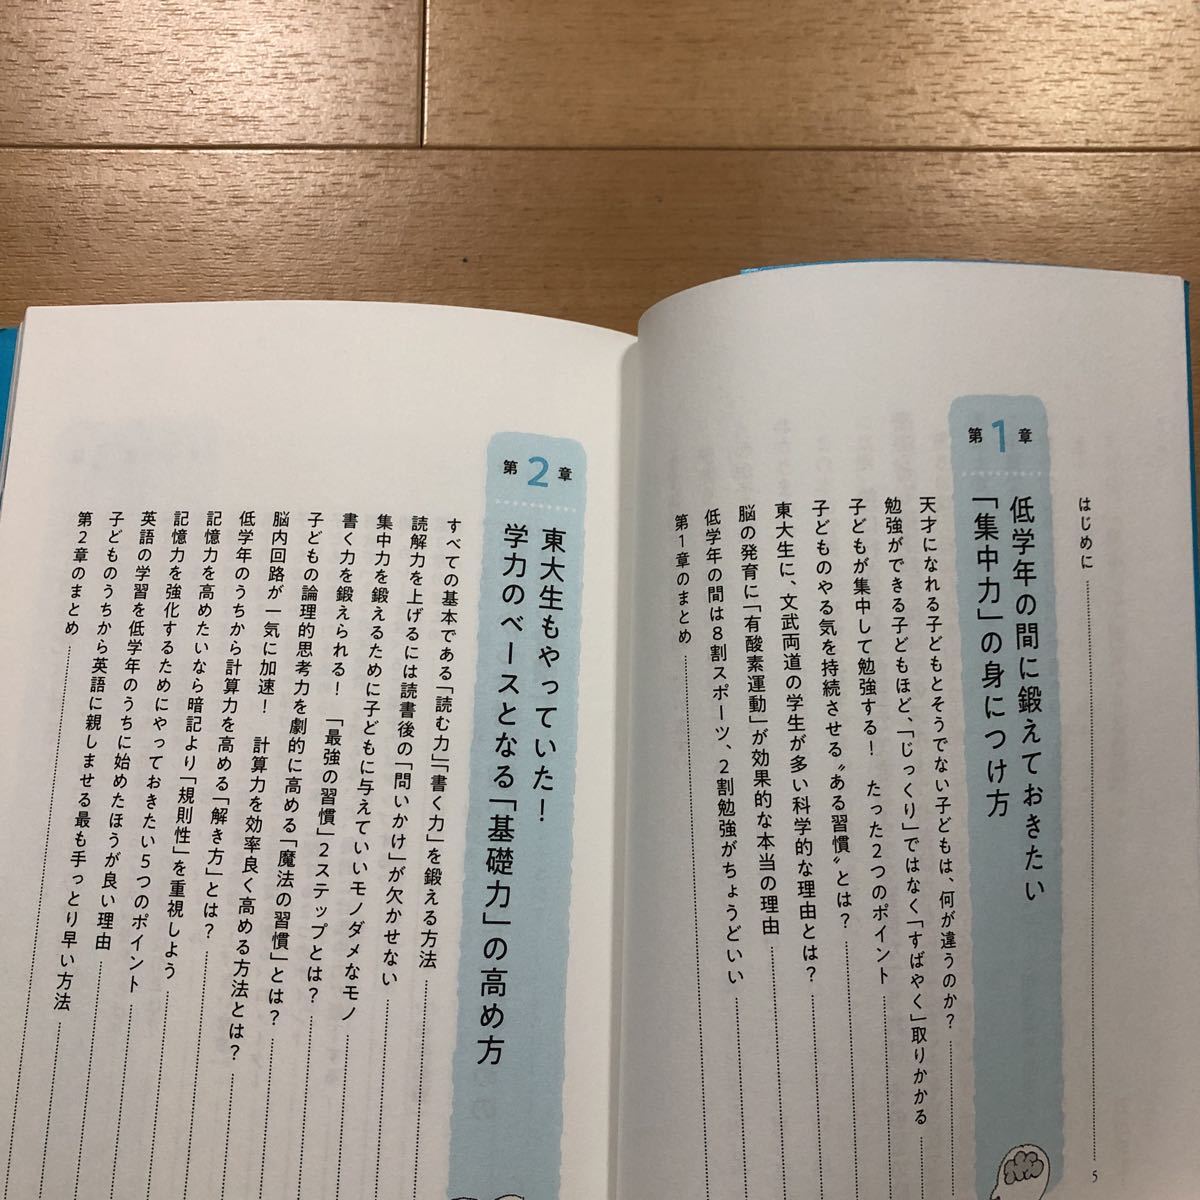 はじめに 5
第1章
低学年の間に鍛えておきたい
「集中力」の身につけ方
天才になれる子どもとそうでない子どもは、何が違うのか？
勉強ができる子どもほど、「じっくり」ではなく「すばやく」取りかかる
子どもが集中して勉強する！ たった2つのポイント
子どものやる気を持続させる〝ある習慣〟とは？
東大生に、文武両道の学生が多い科学的な理由とは？
脳の発育に「有酸素運動」が効果的な本当の理由
低学年の間は8割スポーツ、2割勉強がちょうどいい
第1章のまとめ
第2章
東大生もやっていた！
学力のベースとなる「基礎力」の高め方
すべての基本である「読む力」「書く力」を鍛える方法
読解力を上げるには読書後の「問いかけ」が欠かせない
集中力を鍛えるために子どもに与えていいモノダメなモノ
書く力を鍛えられる！ 「最強の習慣」2ステップとは？
子どもの論理的思考力を劇的に高める「魔法の習慣」とは？
脳内回路が一気に加速！ 計算力を効率良く高める方法とは？
低学年のうちから計算力を高める「解き方」とは？
記憶力を高めたいなら暗記より「規則性」を重視しよう
記憶力を強化するためにやっておきたい5つのポイント
英語の学習を低学年のうちに始めたほうが良い理由
子どものうちから英語に親しませる最も手っとり早い方法
第2章のまとめ